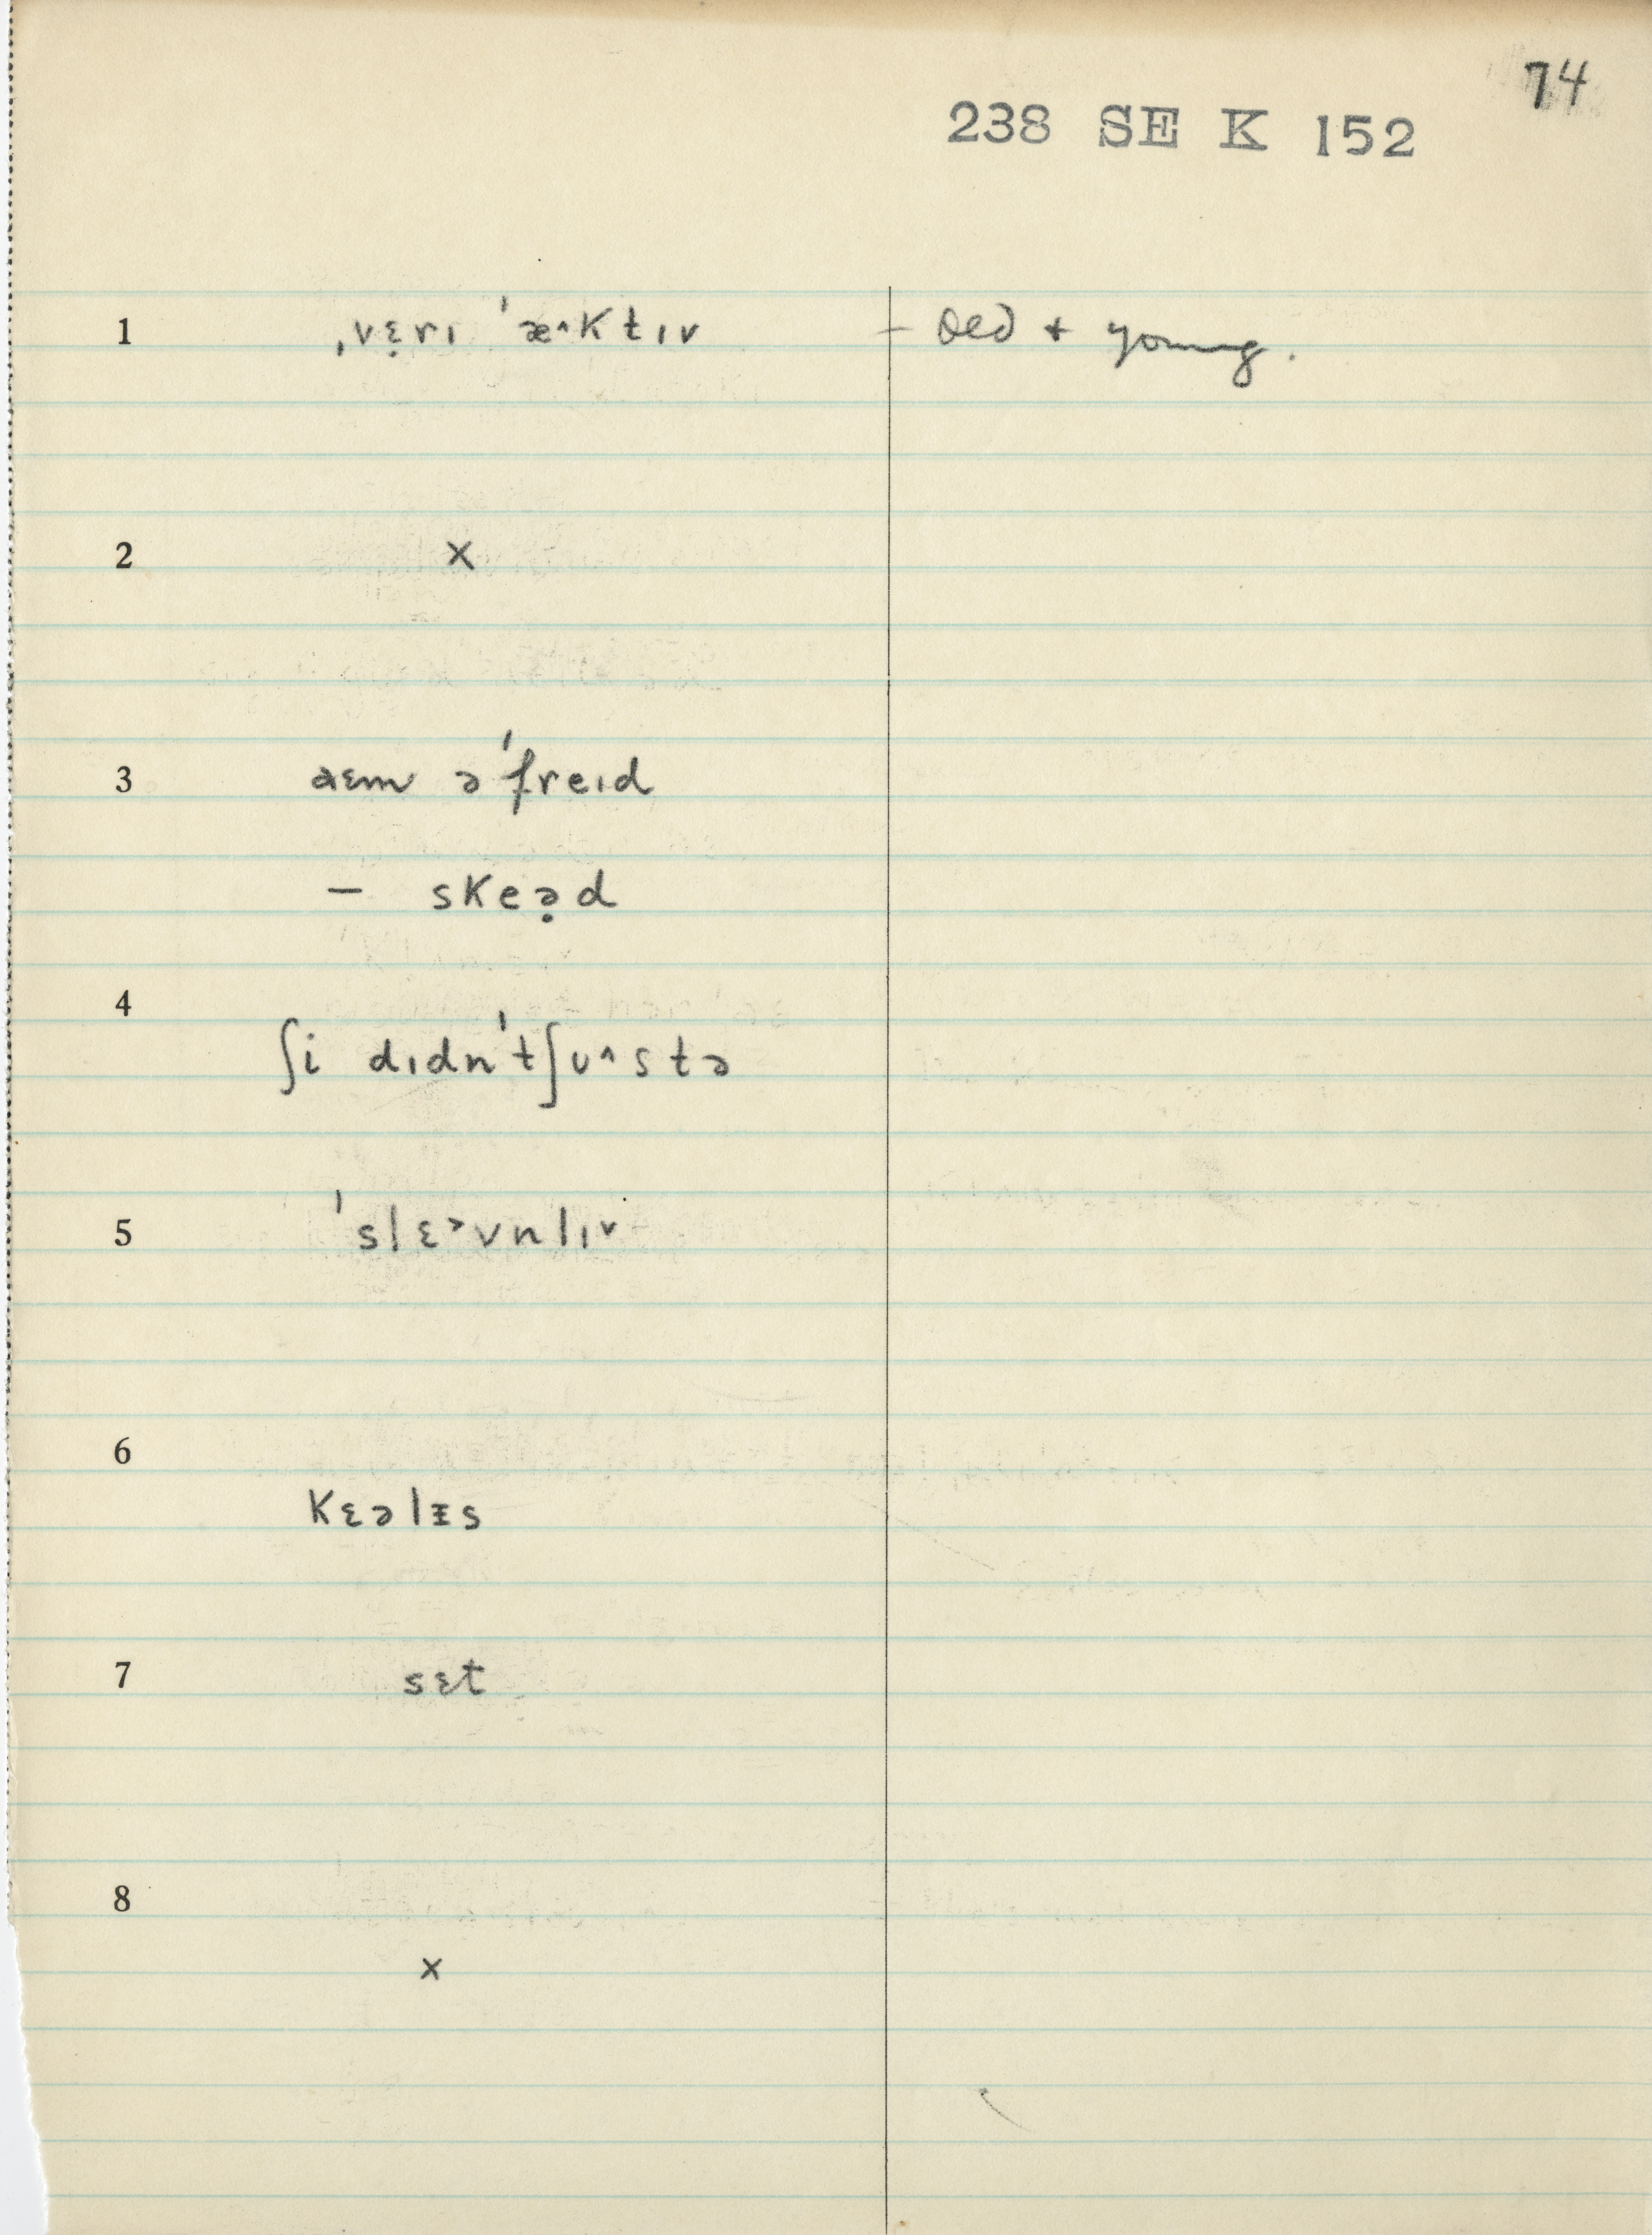 74
238 SE K 152
1 ˌvɛ̣rɪ ˈæ^ktɪv – Old + young.
2 x
3 aɛm əˈfreɪd
– skeə̣d
4 ʃi dɪdnˈtʃu^stə
5 ˈslɛ˃vnlɪ˅
6 kɛəlᵻs
7 sɛt
8 x